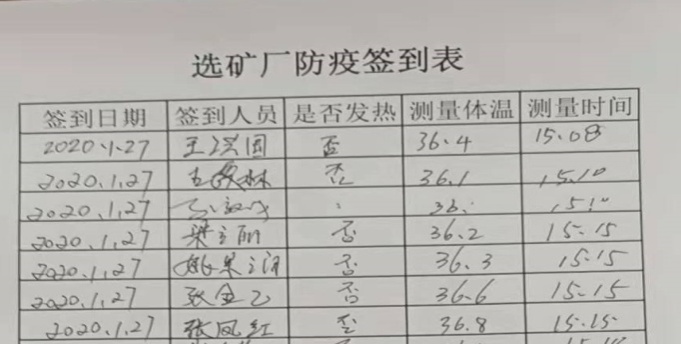 选矿厂防疫签到表
签到日期 签到人员 是否发热 测量体温 测量时间
2020.1.27 王 国 否 36.4 15.08
2020.1.27 林 否 36.1 15.10
2020.1.27 36. 1510
2020.1.27 梁 否 36.2 15-15
2020.1.27 姚 否 36.3 15.15
2020.1.27 张金乙 否 36.6 15-15
2020.1.27 张凤红 否 36.8 15.15